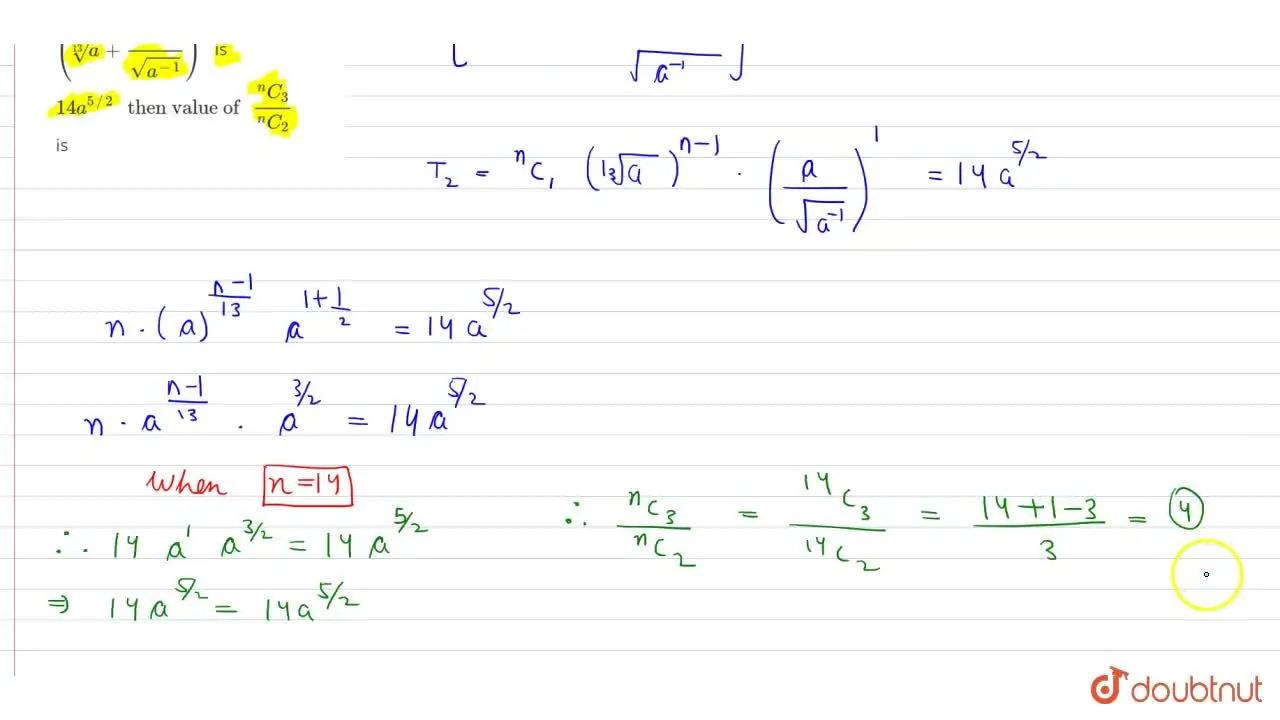 (¹³√a + /√a⁻¹) is
14a^{5/2} then value of ⁿC₃/ⁿC₂
is
[ √a⁻¹ ]
T₂ = ⁿC₁ (¹³√a)^{n-1} · (a/√a⁻¹)^1 = 14 a^{5/2}
n · (a)^{(n-1)/13} a^{1+1/2} = 14 a^{5/2}
n · a^{(n-1)/13} · a^{3/2} = 14 a^{5/2}
When n=14
∴ 14 a^1 a^{3/2} = 14 a^{5/2}
⇒ 14 a^{5/2} = 14a^{5/2}
∴ ⁿC₃/ⁿC₂ = ¹⁴C₃/¹⁴C₂ = (14+1-3)/3 = 4
doubtnut